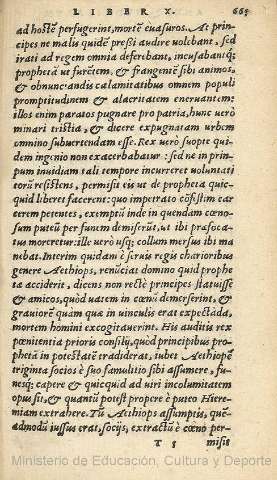 LIBER X. 665
ad hostē perfugerint, mortē euasuros. At prin-
cipes ne malū quidē pressi audire volebant, sed
irati ad regem omnia deferebant, incusabantq́;
prophetā ut furētem, & frangentē sibi animos,
& obnunciandis calamitatibus omnem populi
promptitudinem & alacritatem eneruantem:
illos enim paratos pugnare pro patria, hunc verò
minari tristia, & dicere expugnatam urbem
omnino subuertendam esse. Rex verò suopte qui-
dem ingenio non exacerbabatur: sed ne in prin-
cipum inuidiam tali tempore incurreret voluntati
eorū resistens, permisit eis ut de propheta quic-
quid liberet facerent: quo impetrato cōfestim car
cerem petentes, exemptū inde in quendam cœno-
sum puteū per funem demiserūt, ut ibi præfoca-
tus moreretur: ille verò usq; collum mersus ibi ma
nebat. Interim quidam è seruis regis charioribus
genere Aethiops, renūciat domino quid prophe
tæ acciderit, dicens non rectè principes statuisse
& amicos, quòd uatem in cœnū demerserint, &
grauiorē quàm quæ in vinculis erat expectāda,
mortem homini excogitauerint. His auditis rex
pœnitentia prioris consilij, quòd principibus pro-
phetā in potestatē tradiderat, iubet Aethiopē
triginta socios è suo famulitio sibi assumere, fu-
nesq́; capere & quicquid ad uiri incolumitatem
opus sit, & quantū potest propere è puteo Hiere-
miam extrahere. Tū Aethiops assumptis, quē-
admodū iussus erat, socijs, extractū è cœno per-
T 5 misit
Ministerio de Educación, Cultura y Deporte